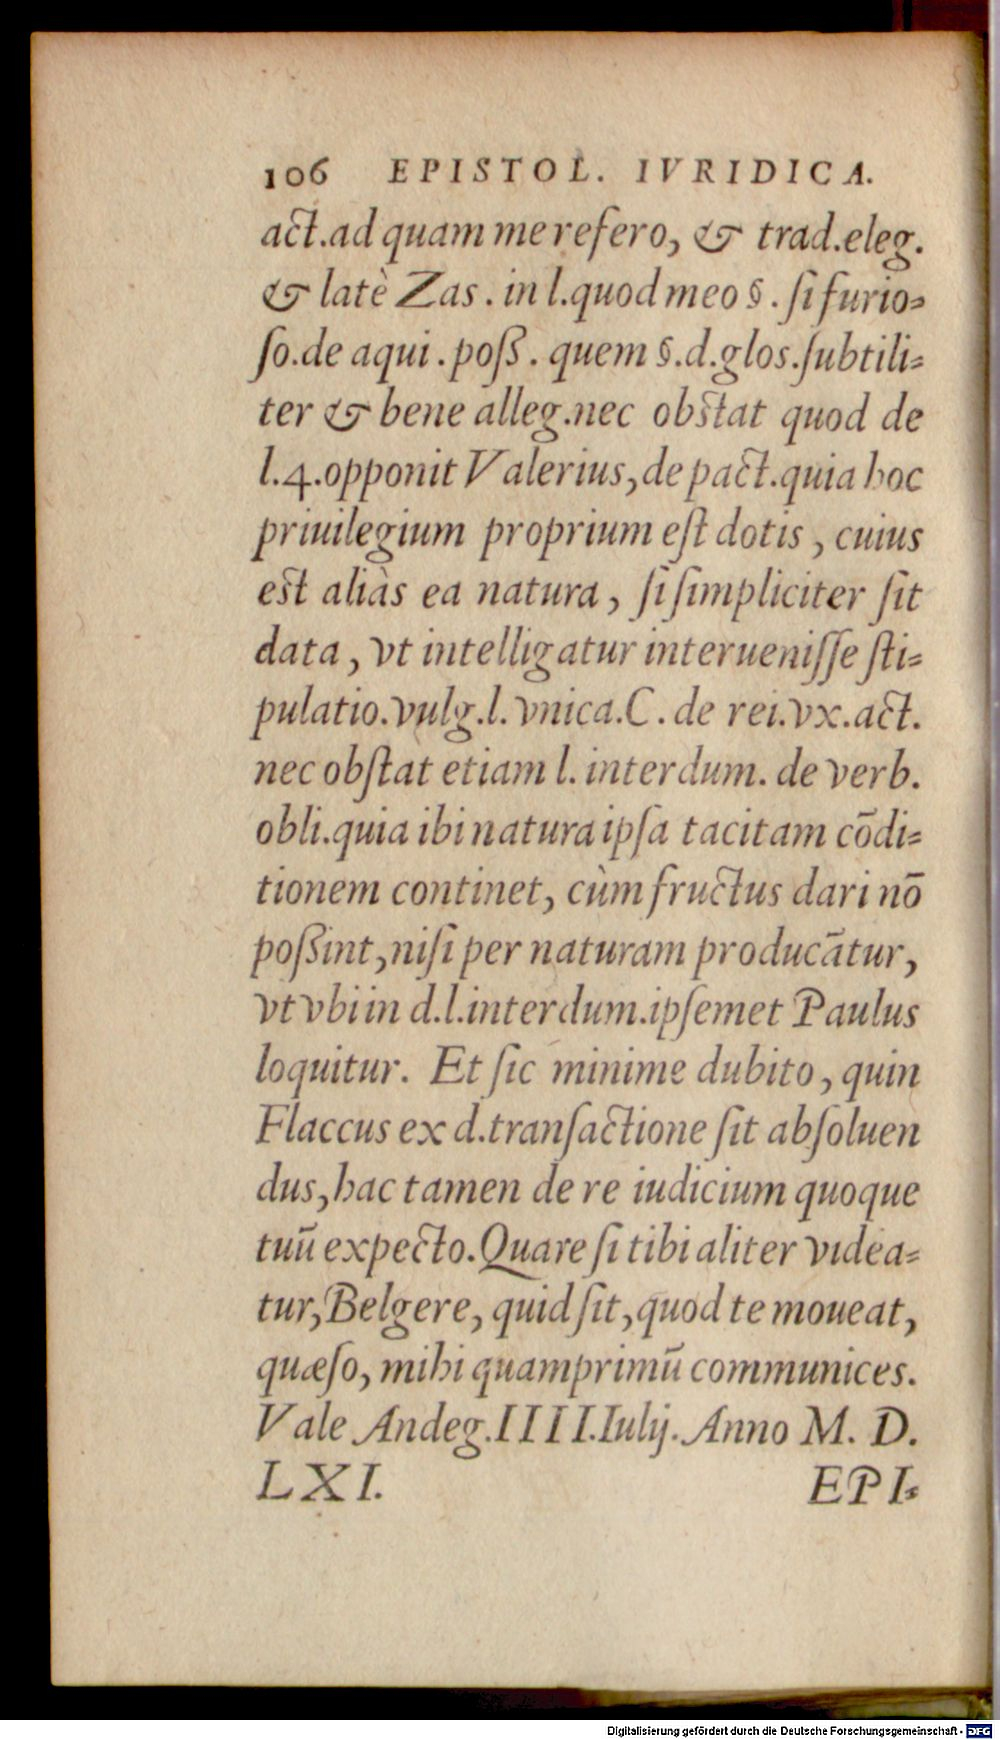 106 EPISTOL. IVRIDICA.
act.ad quam me refero, & trad.eleg.
& latè Zas. in l.quod meo §. ſi furio-
ſo.de aqui. poß. quem §.d.glos.ſubtili-
ter & bene alleg.nec obstat quod de
l.4.opponit Valerius, de pact.quia hoc
priuilegium proprium eſt dotis, cuius
est aliàs ea natura, ſi ſimpliciter ſit
data, vt intelligatur interueniſſe ſti-
pulatio.vulg.l. vnica.C. de rei.vx.act.
nec obſtat etiam l. interdum. de verb.
obli.quia ibi natura ipſa tacitam cōdi-
tionem continet, cùm fructus dari nō
poßint, niſi per naturam producātur,
vt vbi in d.l.interdum.ipſemet Paulus
loquitur. Et ſic minime dubito, quin
Flaccus ex d.tranſactione ſit abſoluen
dus, hac tamen de re iudicium quoque
tuū expecto. Quare ſi tibi aliter videa-
tur, Belgere, quid ſit, quod te moueat,
quæſo, mihi quamprimū communices.
Vale Andeg.IIII.Iulij. Anno M. D.
LXI. EPI-
Digitalisierung gefördert durch die Deutsche Forschungsgemeinschaft - DFG